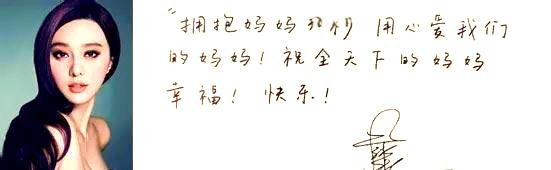 "拥抱妈妈 用心爱我们
的妈妈！祝全天下的妈妈
幸福！快乐！